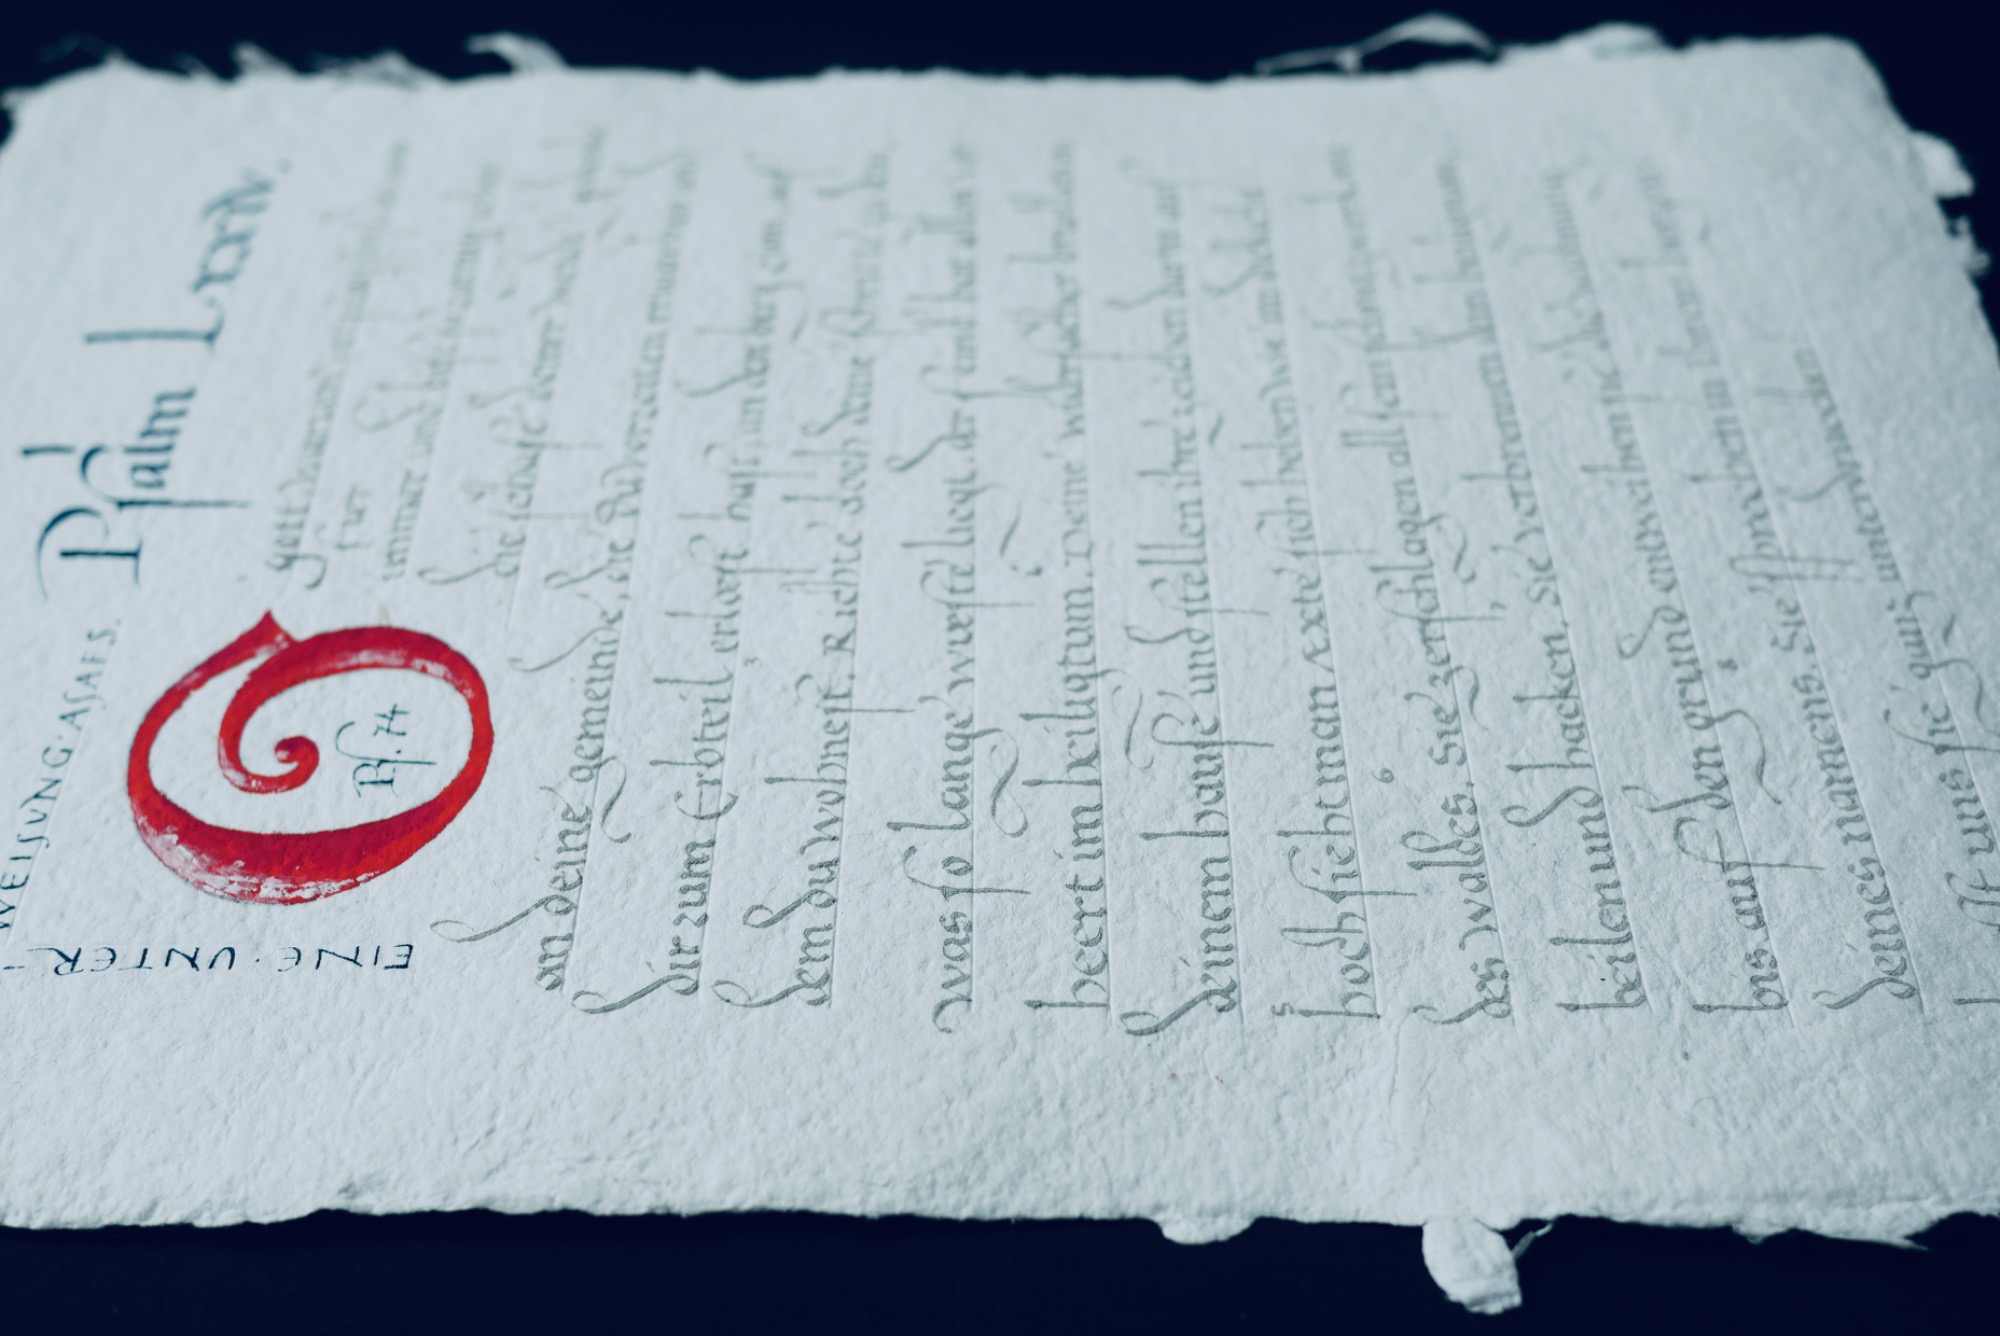 EINE · UNTER-
WEISUNG · ASAFS.
Psalm Lxxiv.
Ps. 74
gott, warum
für
immer und bist so zornig über
die schafe deiner weide? gedenke
an deine gemeinde, die du vorzeiten erworben und
dir zum Erbteil erlöst hast, an den berg zion, auf
3
dem du wohnest. Richte doch deine schritte zu dem
was so lange wüste liegt. der feind hat alles ver
heert im heiligtum. Deine widersacher brüllen
in deinem hause und stellen ihre zeichen darin auf
5 hoch sieht man Äxte sich heben wie im dickicht
6
des waldes. Sie zerschlagen all sein schnitzwerk mit
beilen und hacken. Sie verbrennen dein heiligtum,
bis auf den grund entweihen sie die wohnung
8
deines namens. Sie sprechen in ihrem herzen:
lasst uns sie ganz unterdrücken!